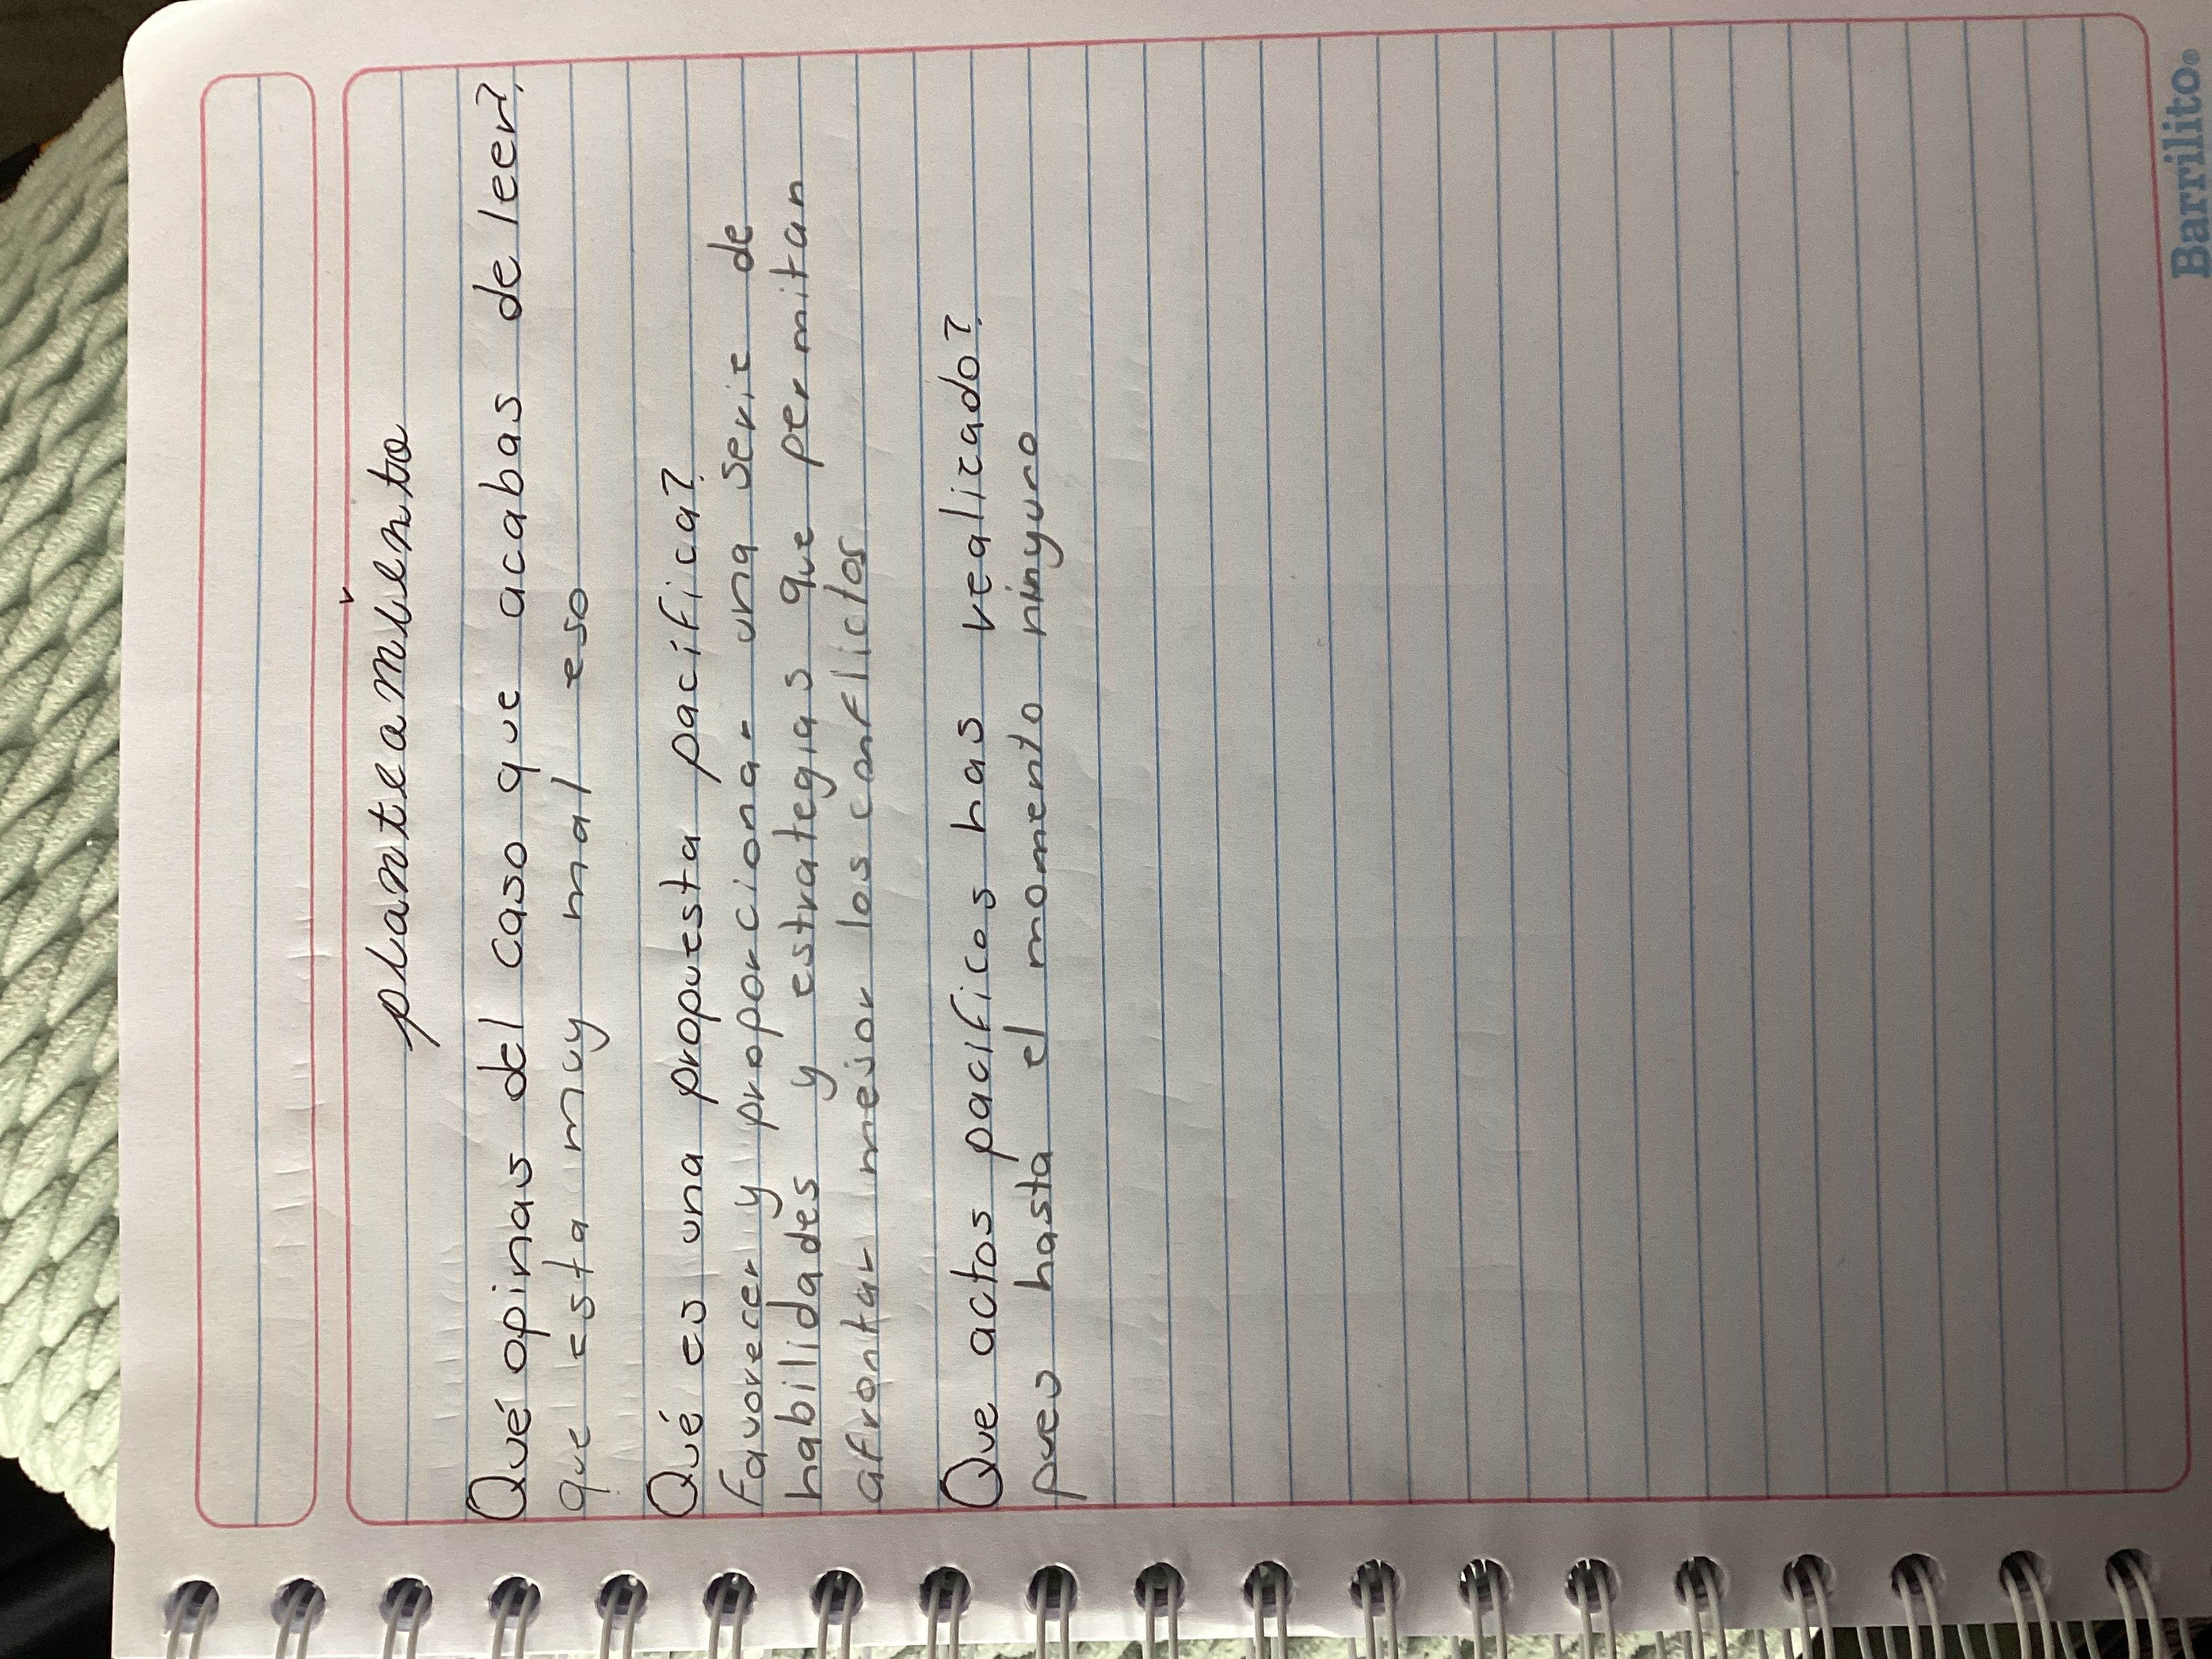 planteamiento
Qué opinas del caso que acabas de leer?
que esta muy mal eso
Qué es una propuesta pacífica?
Favorecer y proporcionar una serie de
habilidades y estrategias que permitan
afrontar mejor los conflictos
Que actos pacificos has realizado?
pues hasta el momento ninguno
Barrilito®